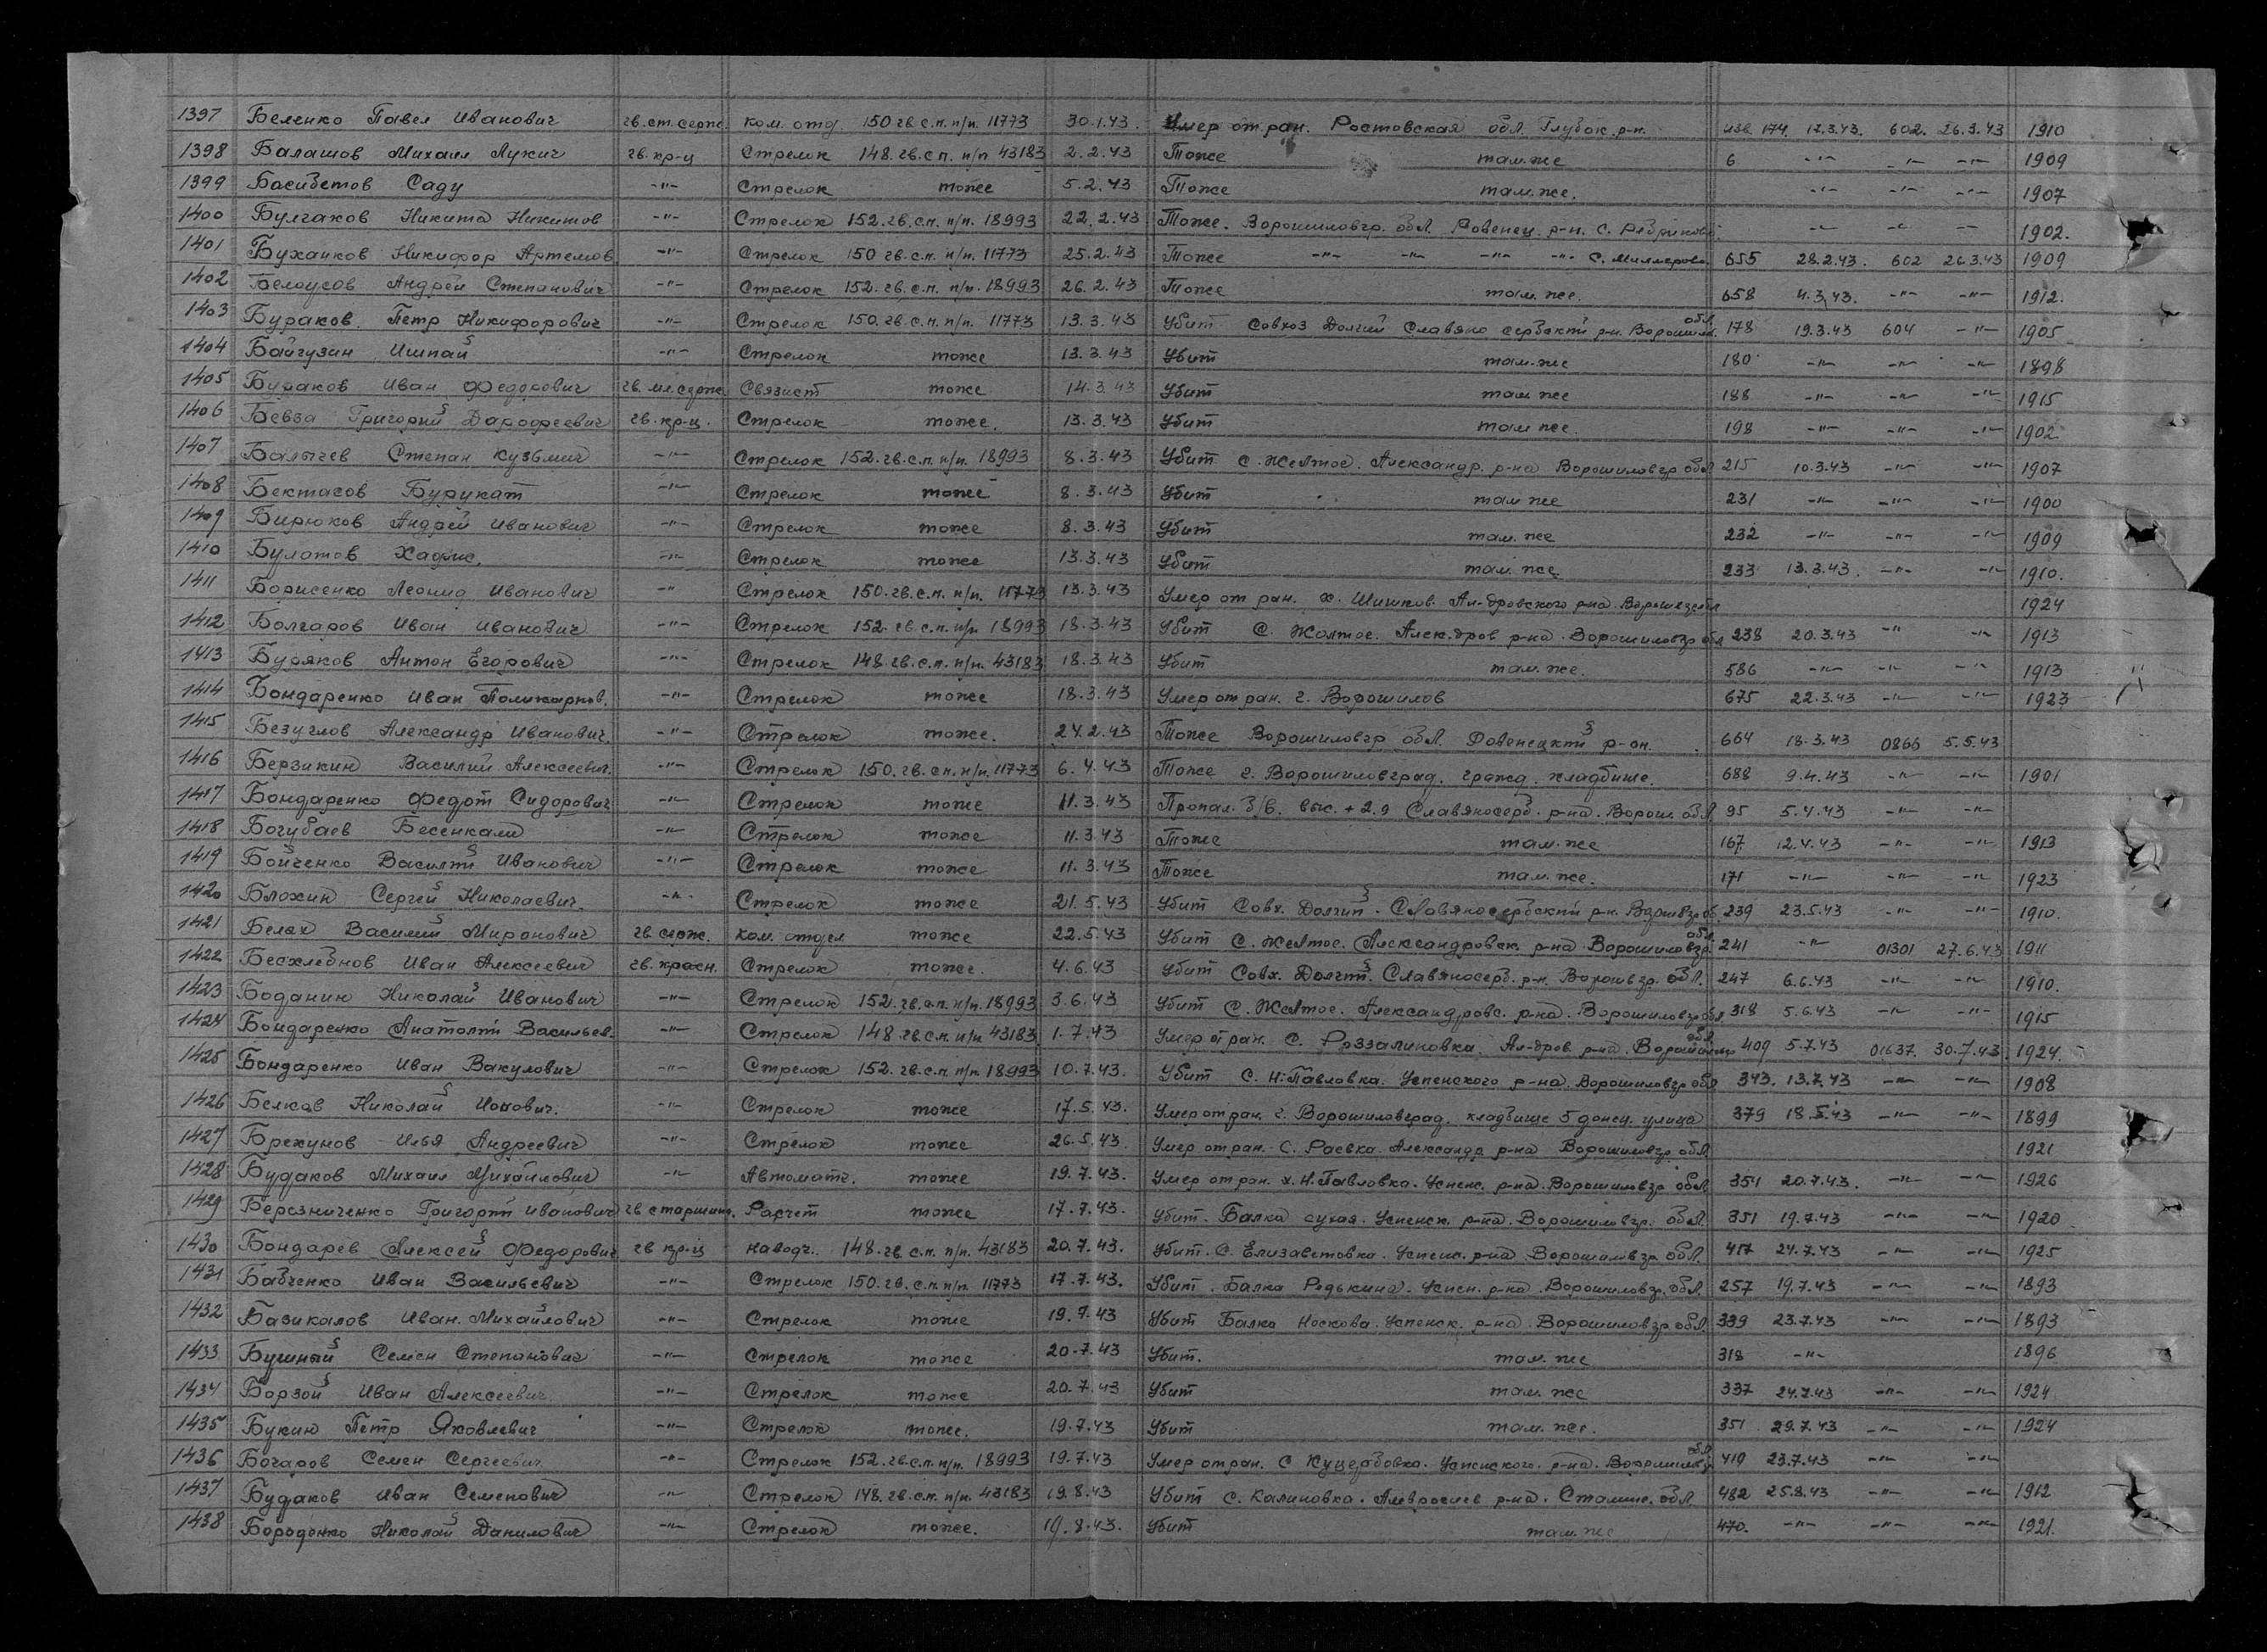 1397 Беленко Павел Иванович гв.ст.серж. ком. отд. 150 гв.с.п. п/п. 11773 30.1.43. Умер от ран. Ростовская обл. Глубок. р-н. изв. 174. 12.3.43. 602. 26.3.43 1910
1398 Балашов Михаил Лукич гв.кр-ц Стрелок 148.гв.с.п. п/п. 43183 2.2.43 Тоже там.же 6 -"- -"- -"- 1909
1399 Басибетов Саду -"- Стрелок тоже 5.2.43 Тоже там.же. -"- -"- -"- 1907
1400 Булгаков Никита Никитов -"- Стрелок 152.гв.с.п. п/п. 18993 22.2.43 Тоже. Ворошиловгр. обл. Ровенец. р-н. С. Ребриково. -"- -"- -"- 1902.
1401 Буханков Никифор Артемов -"- Стрелок 150 гв.с.п. п/п. 11773 25.2.43 Тоже -"- -"- -"- -"- С. Миллерово 655 28.2.43. 602 26.3.43 1909
1402 Белоусов Андрей Степанович -"- Стрелок 152.гв.с.п. п/п. 18993 26.2.43 Тоже там.же. 658 4.3.43. -"- -"- 1912.
1403 Бураков. Петр Никифорович -"- Стрелок 150.гв.с.п. п/п. 11773 13.3.43 Убит Совхоз Долгий Славяно сербский р-н. Ворошилов. обл. 178 19.3.43 604 -"- 1905
1404 Байгузин Ишпай -"- Стрелок тоже 13.3.43 Убит там-же 180 -"- -"- -"- 1898
1405 Бураков Иван Федорович гв.мл.серж. Связист тоже 14.3.43 Убит там же 188 -"- -"- -"- 1915
1406 Бевза Григорий Дарофеевич гв.кр-ц. Стрелок тоже. 13.3.43 Убит там же. 198 -"- -"- -"- 1902
1407 Балычев Степан Кузьмич -"- Стрелок 152.гв.с.п. п/п. 18993 8.3.43 Убит С. Желтое. Александр. р-на Ворошиловгр обл 215 10.3.43 -"- -"- 1907
1408 Бектасов Бурукат -"- Стрелок тоже 8.3.43 Убит там же 231 -"- -"- -"- 1900
1409 Бирюков Андрей Иванович -"- Стрелок тоже 8.3.43 Убит там.же 232 -"- -"- -"- 1909
1410 Булатов Хадис. -"- Стрелок тоже 13.3.43 Убит там.же 233 13.3.43. -"- -"- 1910.
1411 Борисенко Леонид Иванович -"- Стрелок 150.гв.с.п. п/п. 11773 13.3.43 Умер от ран. х. Шишков. Ал-дровского р-на Ворошвгробл 1924
1412 Болгаров Иван Иванович -"- Стрелок 152.гв.с.п. п/п. 18993 18.3.43 Убит С. Жолтое. Алек.дров р-на Ворошиловгр обл 238 20.3.43 -"- -"- 1913
1413 Буряков Антон Егорович -"- Стрелок 148.гв.с.п. п/п. 43183 18.3.43 Убит там.же. 586 -"- -"- -"- 1913
1414 Бондаренко Иван Поликарпов. -"- Стрелок тоже 18.3.43 Умер от ран. г. Ворошилов 675 22.3.43 -"- -"- 1923
1415 Безуглов Александр Иванович. -"- Стрелок тоже. 24.2.43 Тоже Ворошиловгр обл. Ровенецкий р-он. 664 18.3.43 0866 5.5.43
1416 Берзикин Василий Алексеевич. -"- Стрелок 150.гв.с.п. п/п. 11773 6.4.43 Тоже г. Ворошиловград. гражд. кладбище. 688 9.4.43 -"- -"- 1901
1417 Бондаренко Федот Сидорович -"- Стрелок тоже 11.3.43 Пропал. б/в. выс. + 2.9 Славяносерб. р-на. Ворош. обл 95 5.4.43 -"- -"-
1418 Богубаев Бесенкали -"- Стрелок тоже 11.3.43 Тоже там.же 167 12.4.43 -"- -"- 1913
1419 Бойченко Василий Иванович -"- Стрелок тоже 11.3.43 Тоже там.же. 171 -"- -"- -"- 1923
1420 Блохин Сергей Николаевич. -"- Стрелок тоже 21.5.43 Убит Совх. Долгий. Славяносербский р-н. Ворошвгр об. 239 23.5.43 -"- -"- 1910.
1421 Белах Василий Миронович гв серж. ком. отдел тоже 22.5.43 Убит С. Желтое. Александровск. р-на Ворошиловгр. обл. 241 -"- 01301 27.6.43 1911
1422 Бесхлебнов Иван Алексеевич гв.красн. Стрелок тоже. 4.6.43 Убит Совх. Долгий. Славяносерб. р-н. Ворошвгр. обл. 247 6.6.43 -"- -"- 1910.
1423 Боданин Николай Иванович -"- Стрелок 152.гв.с.п. п/п. 18993 3.6.43 Убит С. Желтое. Александровс. р-на. Ворошиловгр обл 318 5.6.43 -"- -"- 1915
1424 Бондаренко Анатолий Васильев. -"- Стрелок 148 гв.с.п. п/п 43183 1.7.43 Умер от ран. С. Роззалиновка. Ал-дров р-на. Ворошилгр обл. 409 5.7.43 01637. 30.7.43. 1924.
1425 Бондаренко Иван Вакулович -"- Стрелок 152.гв.с.п. п/п 18993 10.7.43. Убит С. Н:Павловка. Успенского р-на. Ворошиловгр обл 343. 13.7.43 -"- -"- 1908
1426 Белков Николай Ионович. -"- Стрелок тоже 17.5.43. Умер от ран. г. Ворошиловград. кладбище 5 донец. улица 379 18.5.43 -"- -"- 1899
1427 Брекунов Илья Андреевич -"- Стрелок тоже 26.5.43. Умер от ран. С. Раевка Александр р-на Ворошиловгр. обл 1921
1428 Будаков Михаил Михайлович -"- Автоматч. тоже 19.7.43. Умер от ран. х. Н.Павловка. Успенс. р-на. Ворошиловгр обл 351 20.7.43. -"- -"- 1926
1429 Березниченко Григорий Иванович гв старшина. Расчет тоже 17.7.43. Убит. Балка сухая. Успенск. р-на. Ворошиловгр. обл. 351 19.7.43 -"- -"- 1920
1430 Бондарев Алексей Федорович гв кр-ц наводч. 148.гв с.п. п/п. 43183 20.7.43. Убит. С. Елизаветовка. Успенс. р-на Ворошиловгр обл. 417 24.7.43 -"- -"- 1925
1431 Бабченко Иван Васильевич -"- Стрелок 150.гв.с.п. п/п. 11773 17.7.43. Убит. Балка Редькина. Успен. р-на. Ворошиловгр. обл. 257 19.7.43 -"- -"- 1893
1432 Базикалов Иван. Михайлович -"- Стрелок тоже 19.7.43 Убит Балка Носкова. Успенск. р-на. Ворошиловгр обл. 339 23.7.43 -"- -"- 1893
1433 Бушный Семен Степанович -"- Стрелок тоже 20.7.43 Убит. там.же 318 -"- 1896
1434 Борзой Иван Алексеевич -"- Стрелок тоже 20.7.43 Убит там.же 337 24.7.43 -"- -"- 1924
1435 Букин Петр Яковлевич -"- Стрелок тоже. 19.7.43 Убит там.же. 351 29.7.43 -"- -"- 1924
1436 Богаров Семен Сергеевич -"- Стрелок 152.гв.с.п. п/п. 18993 19.7.43 Умер от ран. С Куцербовка. Успенского. р-на. Ворошиловгр обл 419 23.7.43 -"- -"-
1437 Будаков Иван Семенович -"- Стрелок 148.гв.с.п. п/п. 43183 19.8.43 Убит С. Калиновка. Амвросиев р-на. Сталинс. обл. 482 25.8.43 -"- -"- 1912
1438 Бороденко Николай Данилович -"- Стрелок тоже. 19.8.43. Убит там.же 470. -"- -"- -"- 1921.